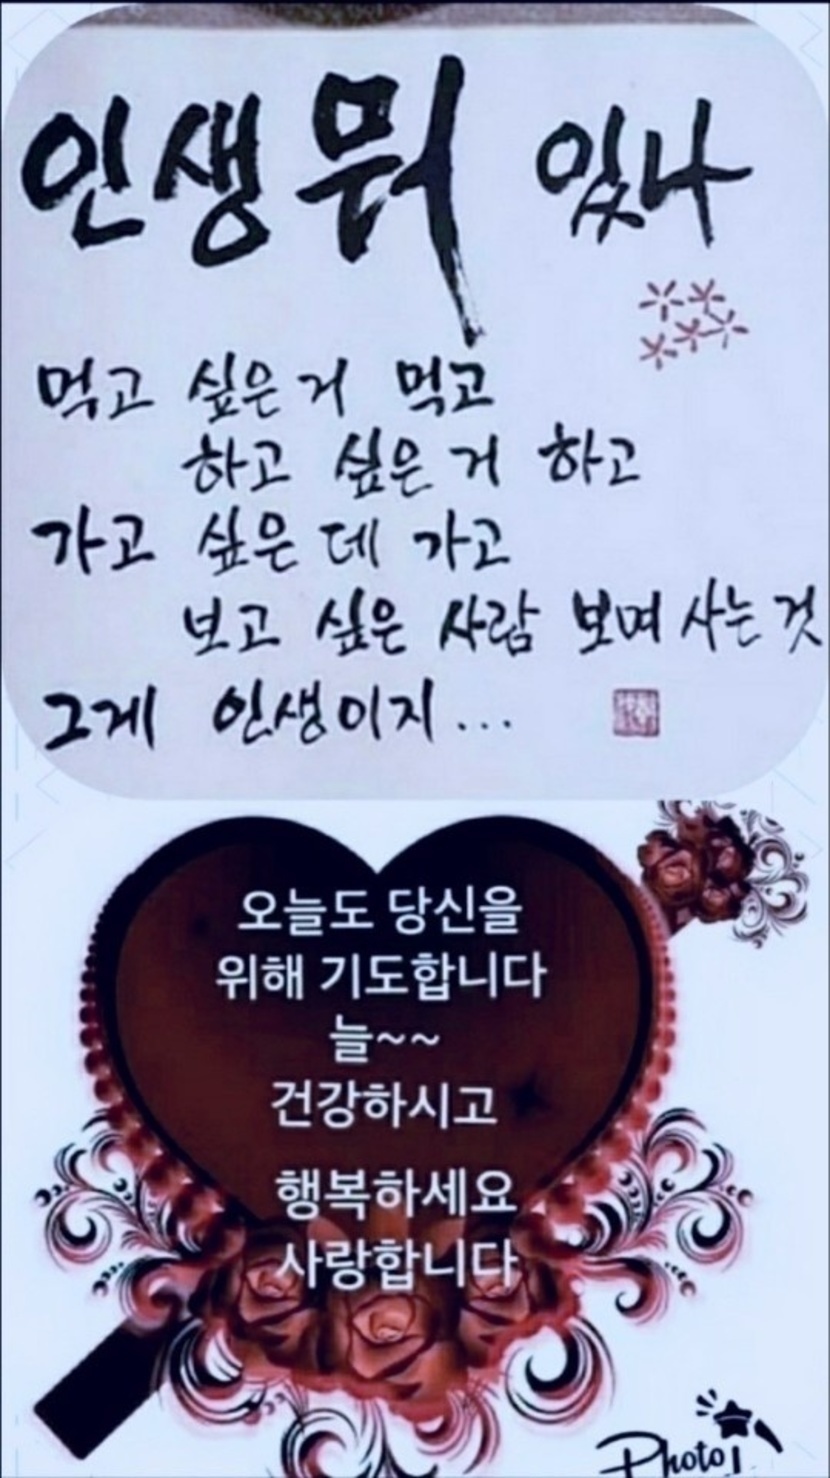 인생 뭐 있나
먹고 싶은거 먹고
하고 싶은거 하고
가고 싶은데 가고
보고 싶은 사람 보며 사는것
그게 인생이지...
오늘도 당신을
위해 기도합니다
늘~~
건강하시고
행복하세요
사랑합니다
Photo